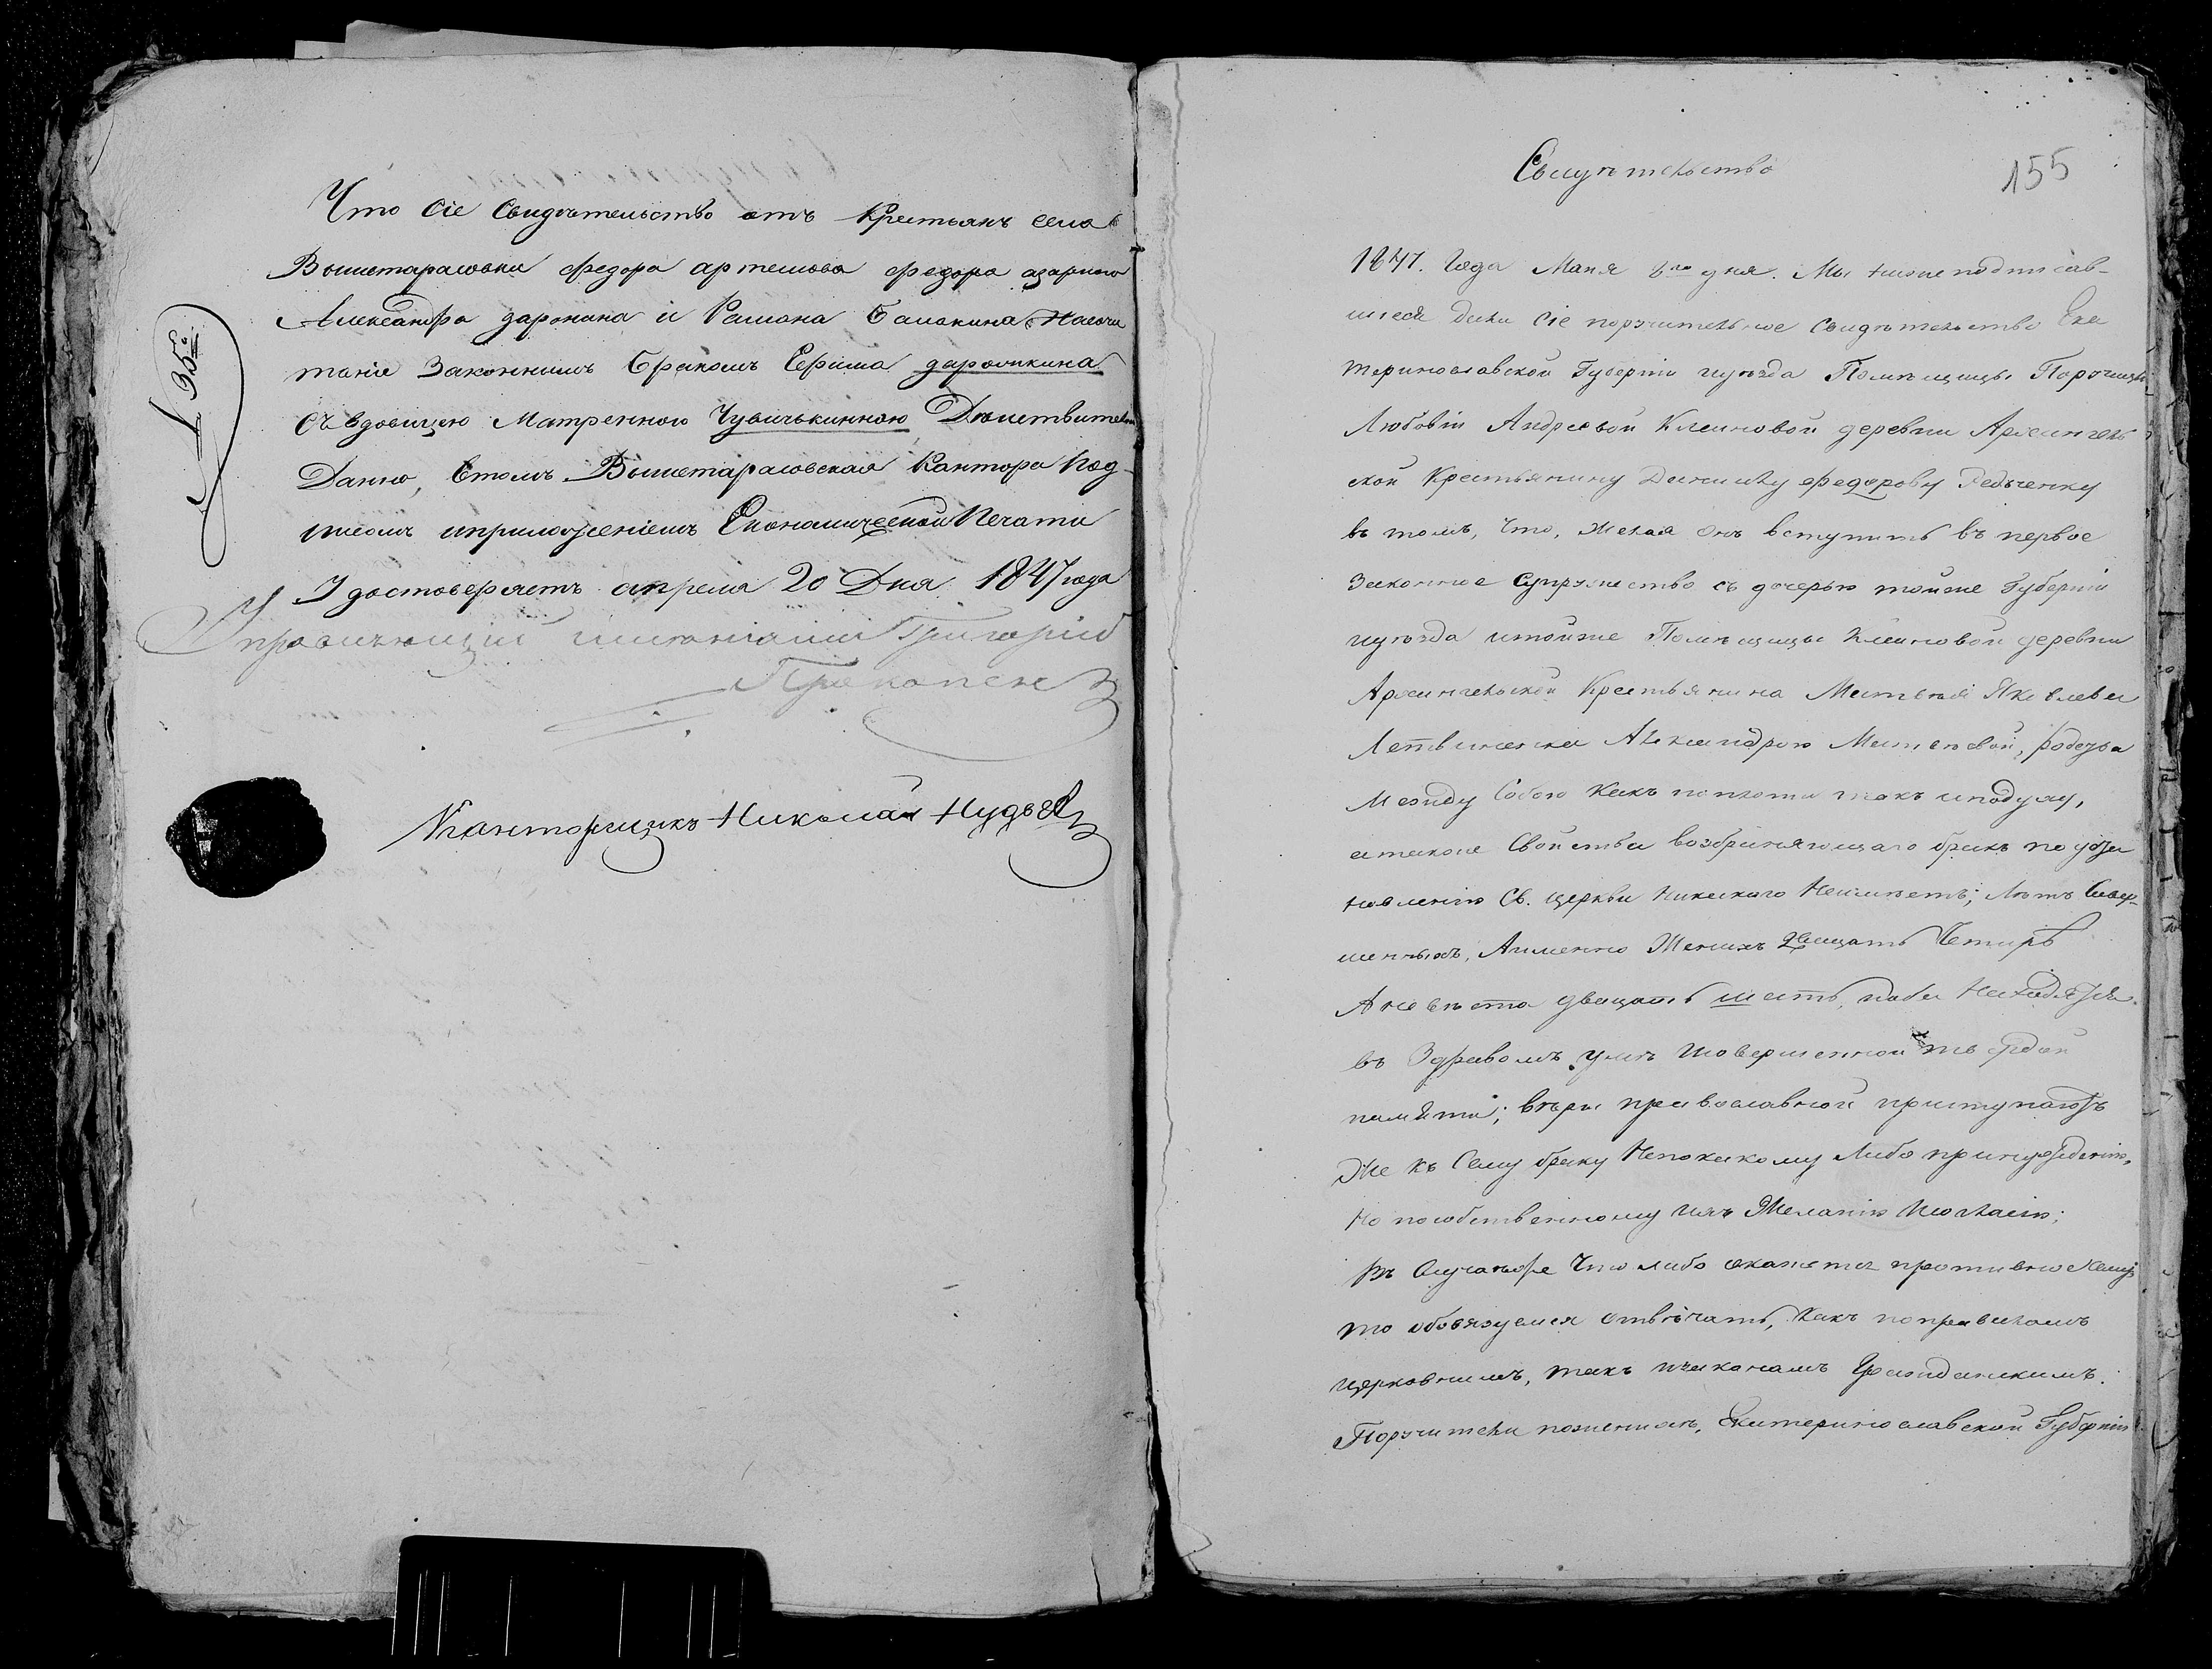 № 35й
Что Сіе Свидѣтельство отъ Крестьянъ села
Вышетарасовки Федора артемова Федора азарного
Александра даронина и Рамана Балакина Насоче
таніе Законнымъ бракомъ Ефима даромкина
съ вдовицею Матренною Чувичькинною Дѣиствительно
Данно, Втомъ Вышетарасовская Кантора Под-
писомъ иприложеніемъ Економической Печати
Удостоверяетъ апреля 20 Дня 1847 года
Управляющій имѣніями Григорій
Прокопенко
Канторщикъ Николай Нудьга
Свидѣтельство
155
1847. Года Маия 8го дня. Мы нижеподписав-
шіеся дали сіе поручительное свидѣтельство Ека
теринославской Губерніи иуѣзда Помѣщицы Поручицы
Любовіи Андреевой Клеиновой деревни
ской Крестьянину Данилу Федорову Редьченку
въ томъ, что, желая онъ вступить въ первое
Законное Супружество съ дочерью тойже Губерніи
иуѣзда итойже Помѣщицы Клеиновой деревни
Крестьянина Матвѣя Яковлева
Летвиненка Александрою Матвѣевой, родства
Между Собою Какъ поплоти такъ иподуху,
атакже Свойства возбраняющаго бракъ по уста
новленію Св. церкви никакого Неимѣетъ; Лѣтъ Совер-
шенныхъ, Аименно Женихъ двацать Четырѣ
Аневѣста двацать шесть, иоба Находятся.
въ Здравомъ умѣ исовершенной твердой
памяти; вѣры православной приступаютъ
Же къ Сему браку Непокакому Либо принужденію,
Но пособственному ихъ Желанію исогласію;
Въ Случаѣже Что либо окажется противное Сему
то обовязуемся отвѣчать, Какъ поправиламъ
церковнимъ, такъ изаконамъ Гражданскимъ.
Поручители поженихѣ, Екатеринославской Губерніи